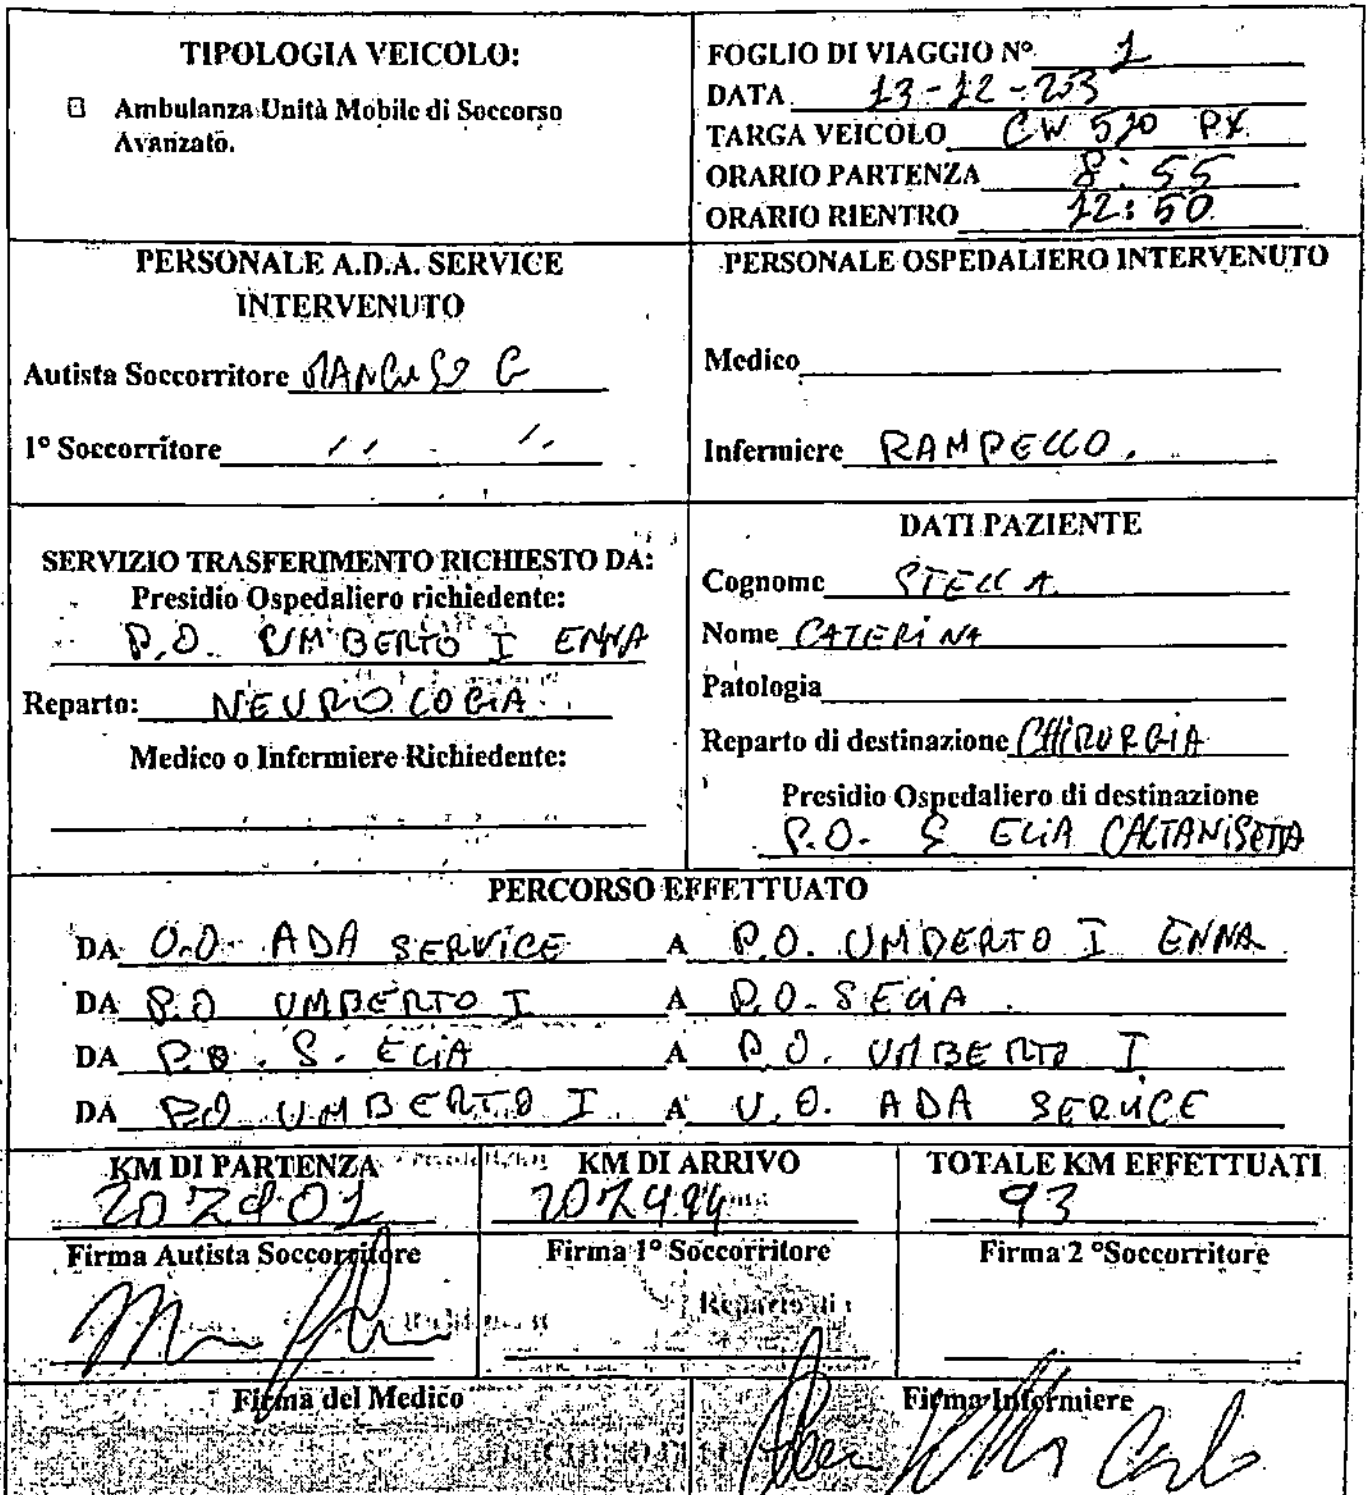 TIPOLOGIA VEICOLO:
Ambulanza Unità Mobile di Soccorso
Avanzato.
FOGLIO DI VIAGGIO N° 1
DATA 13-12-
TARGA VEICOLO CW 520 PX
ORARIO PARTENZA 8:55
ORARIO RIENTRO 12:50
PERSONALE A.D.A. SERVICE
INTERVENUTO
Autista Soccorritore MANCUSO G
1° Soccorritore
PERSONALE OSPEDALIERO INTERVENUTO
Medico
Infermiere RAMPELLO.
SERVIZIO TRASFERIMENTO RICHIESTO DA:
Presidio Ospedaliero richiedente:
P.O. UMBERTO I ENNA
Reparto: NEUROLOGIA
Medico o Infermiere Richiedente:
DATI PAZIENTE
Cognome STELLA
Nome CATERINA
Patologia
Reparto di destinazione CHIRURGIA
Presidio Ospedaliero di destinazione
P.O. S ELIA CALTANISETTA
PERCORSO EFFETTUATO
DA O.O ADA SERVICE A P.O. UMBERTO I ENNA
DA P.O UMBERTO I A P.O. S ELIA
DA P.O. S. ELIA A P.O. UMBERTO I
DA P.O UMBERTO I A U.O. ADA SERVICE
KM DI PARTENZA KM DI ARRIVO TOTALE KM EFFETTUATI
207401 207494 93
Firma Autista Soccorritore Firma 1° Soccorritore Firma 2 °Soccorritore
Firma del Medico Firma Infermiere